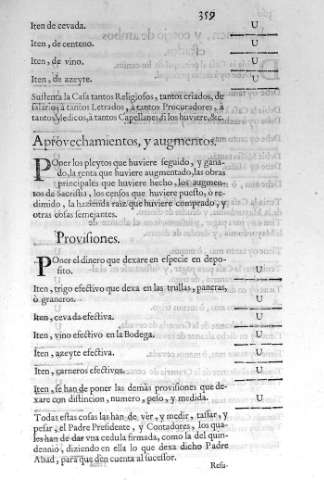 359
Iten de cevada. U
Iten, de centeno. U
Iten, de vino. U
Iten, de azeyte. U
Sustenta la Casa tantos Religiosos, tantos criados, de
salarios à tantos Letrados, à tantos Procuradores, à
tantos Medicos, à tantos Capellanes si los huviere, &c.
Aprovechamientos, y augmentos.
POner los pleytos que huviere seguido, y gana-
do, la renta que huviere augmentado, las obras
principales que huviere hecho, los augmen-
tos de Sacristia, los censos que huviere puesto, ò re-
dimido, la hazienda raiz que huviere comprado, y
otras cosas semejantes.
Provisiones.
POner el dinero que dexare en especie en depo-
sito. U
Iten, trigo efectivo que dexa en las trullas, paneras,
ò graneros. U
Iten, cevada efectiva. U
Iten, vino efectivo en la Bodega. U
Iten, azeyte efectiva. U
Iten, carneros efectivos. U
Iten, se han de poner las demàs provisiones que de-
xare con distincion, numero, peso, y medida. U
Todas estas cosas las han de ver, y medir, tassar, y
pesar, el Padre Presidente, y Contadores, los qua-
les han de dar vna cedula firmada, como la del quin-
dennio, diziendo en ella lo que dexa dicho Padre
Abad, para que den cuenta al sucessor.
Resu-